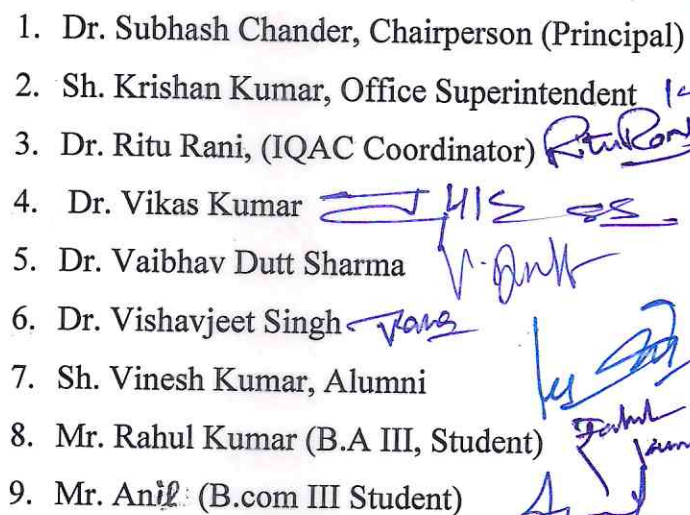 1. Dr. Subhash Chander, Chairperson (Principal)
2. Sh. Krishan Kumar, Office Superintendent
3. Dr. Ritu Rani, (IQAC Coordinator) Ritu Rani
4. Dr. Vikas Kumar
5. Dr. Vaibhav Dutt Sharma V. Dutt
6. Dr. Vishavjeet Singh
7. Sh. Vinesh Kumar, Alumni
8. Mr. Rahul Kumar (B.A III, Student) Rahul
9. Mr. Anil (B.com III Student)